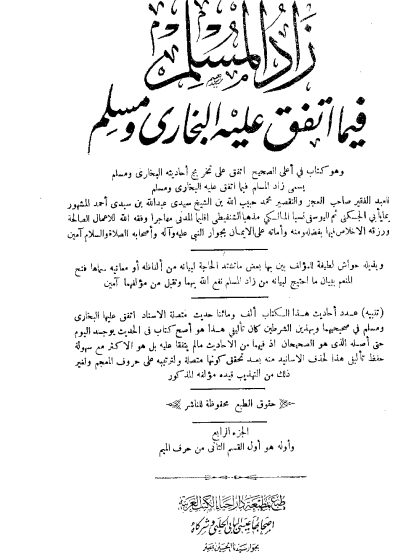 زاد المسلم
فيما اتفق عليه البخارى ومسلم
وهو كتاب فى أعلى الصحيح اتفق على تخريج أحاديثه البخارى ومسلم
يسمى زاد المسلم فيما اتفق عليه البخارى ومسلم
لعبد الفقير صاحب العجز والتقصير محمد حبيب الله بن الشيخ سيدى عبدالله بن سيدى أحمد المشهور
بمايأبى الجكنى ثم اليوسفى نسبا المالكى مذهبا الشنقيطى إقليما المدنى مهاجرا وفقه الله للاعمال الصالحة
ورزقه الاخلاص فيها بفضله ومنه وأماته على الايمان بجوار النبى عليه وآله وأصحابه الصلاة والسلام آمين
وبذيله حواش لطيفة للمؤلف بين بها بعض ماتشتد الحاجة لبيانه من ألفاظه أو معانيه سماها فتح
المنعم ببيان ما احتيج لبيانه من زاد المسلم نفع الله بهما وتقبل من مؤلفهما آمين
(تنبيه) عدد أحاديث هذا الكتاب ألف ومائتا حديث متصلة الاسناد اتفق عليها البخارى
ومسلم فى صحيحيهما وبهذين الشرطين كان تأليفى هذا هو أصح كتاب فى الحديث يوجد اليوم
حتى أصله الذى هو الصحيحان اذ فيهما من الاحاديث مالم يتفقا عليه بل هو الاكثر مع سهولة
حفظ تأليفى هذا لحذف الاسانيد منه بعد تحقق كونها متصلة ولترتيبه على حروف المعجم ولغير
ذلك من التهذيب قيده مؤلفه المذكور
حقوق الطبع محفوظة للناشر
الجزء الرابع
وأوله هو أول القسم الثانى من حرف الميم
طبع بمطبعة دار إحياء الكتب العربية
أصحابها عيسى البابى الحلبى وشركاه
بجوار سيدنا الحسين بمصر